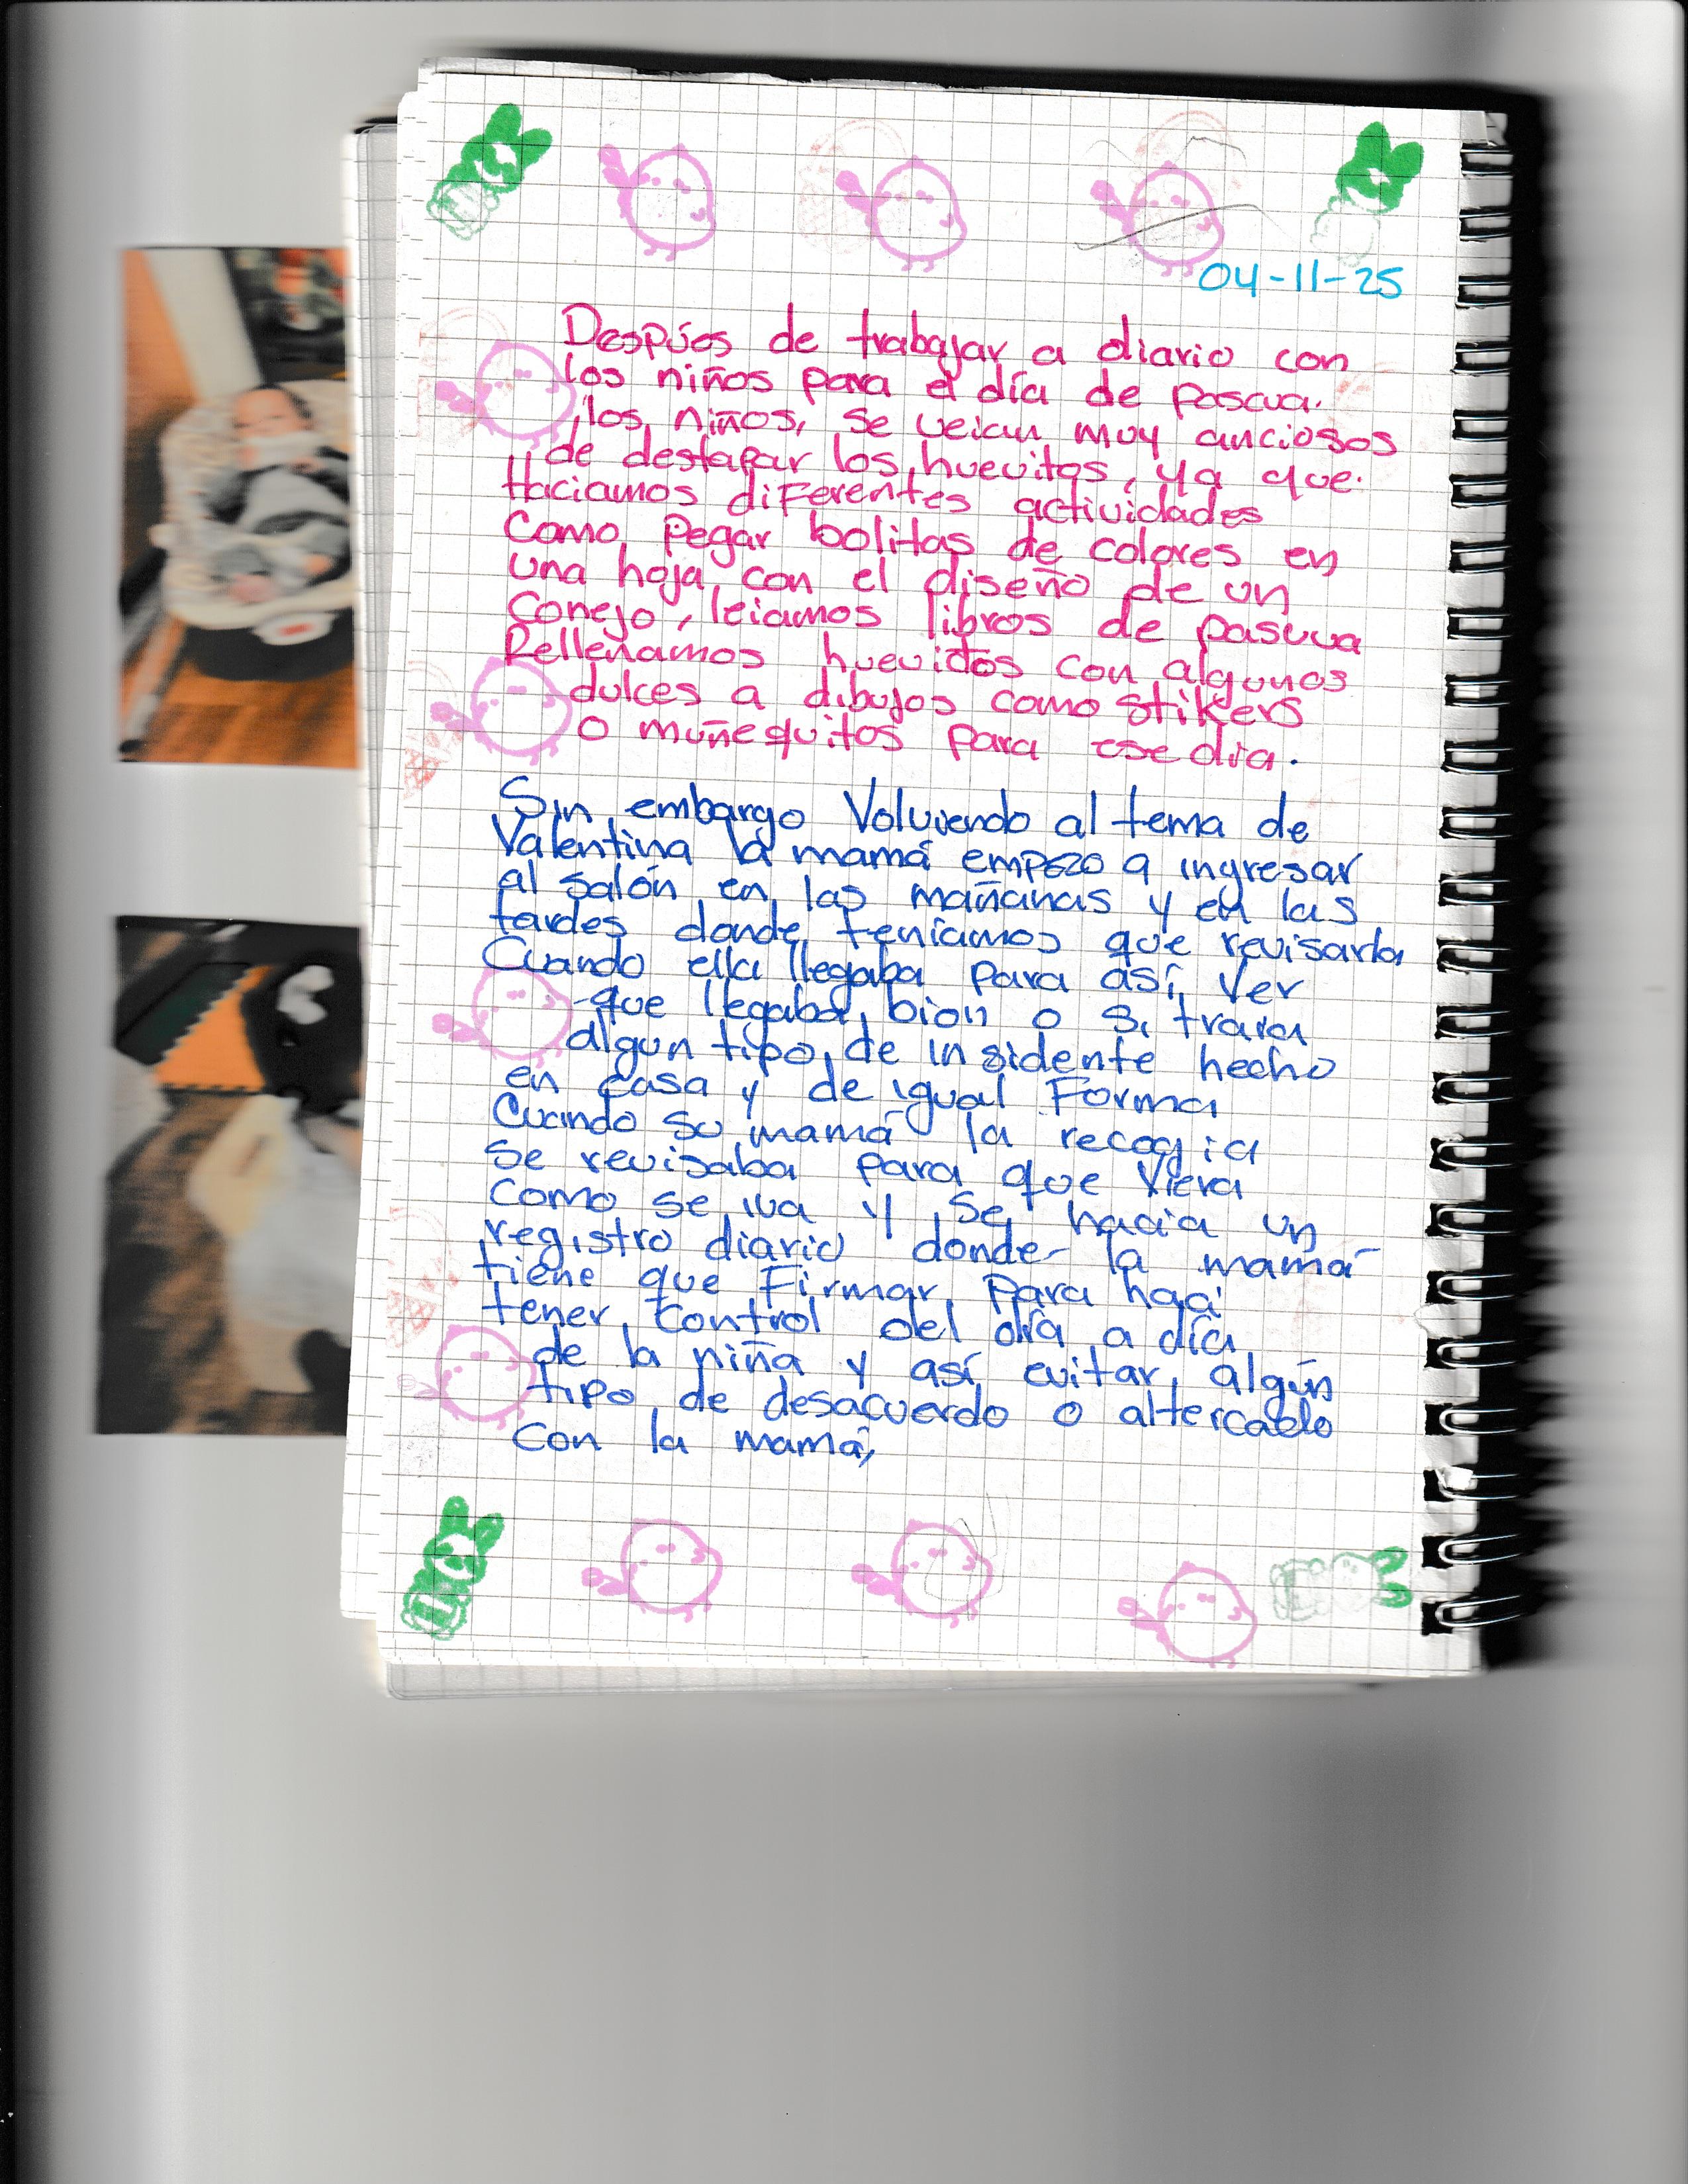 04-11-25
Despúes de trabajar a diario con
los niños para el día de pascua.
los niños, se veian muy anciosos
de destapar los huevitos, ya que.
Haciamos diferentes actividades
como pegar bolitas de colores en
una hoja con el diseño de un
conejo, leiamos libros de pascua
Rellenamos huevitos con algunos
dulces a dibujos como stikers
o muñequitos para ese dia.
Sin embargo Volviendo al tema de
Valentina la mamá empezo a ingresar
al salón en las mañanas y en las
tardes donde teníamos que revisarla
Cuando ella llegaba para así ver
que llegaba bien o si traia
algun tipo de insidente hecho
en casa y de igual Forma
Cuando su mamá la recogia
se revisaba para que viera
como se iva y se hacia un
registro diario donde la mamá
tiene que Firmar para haci
tener control del día a día
de la niña y así evitar algún
tipo de desacuerdo o altercado
Con la mamá,